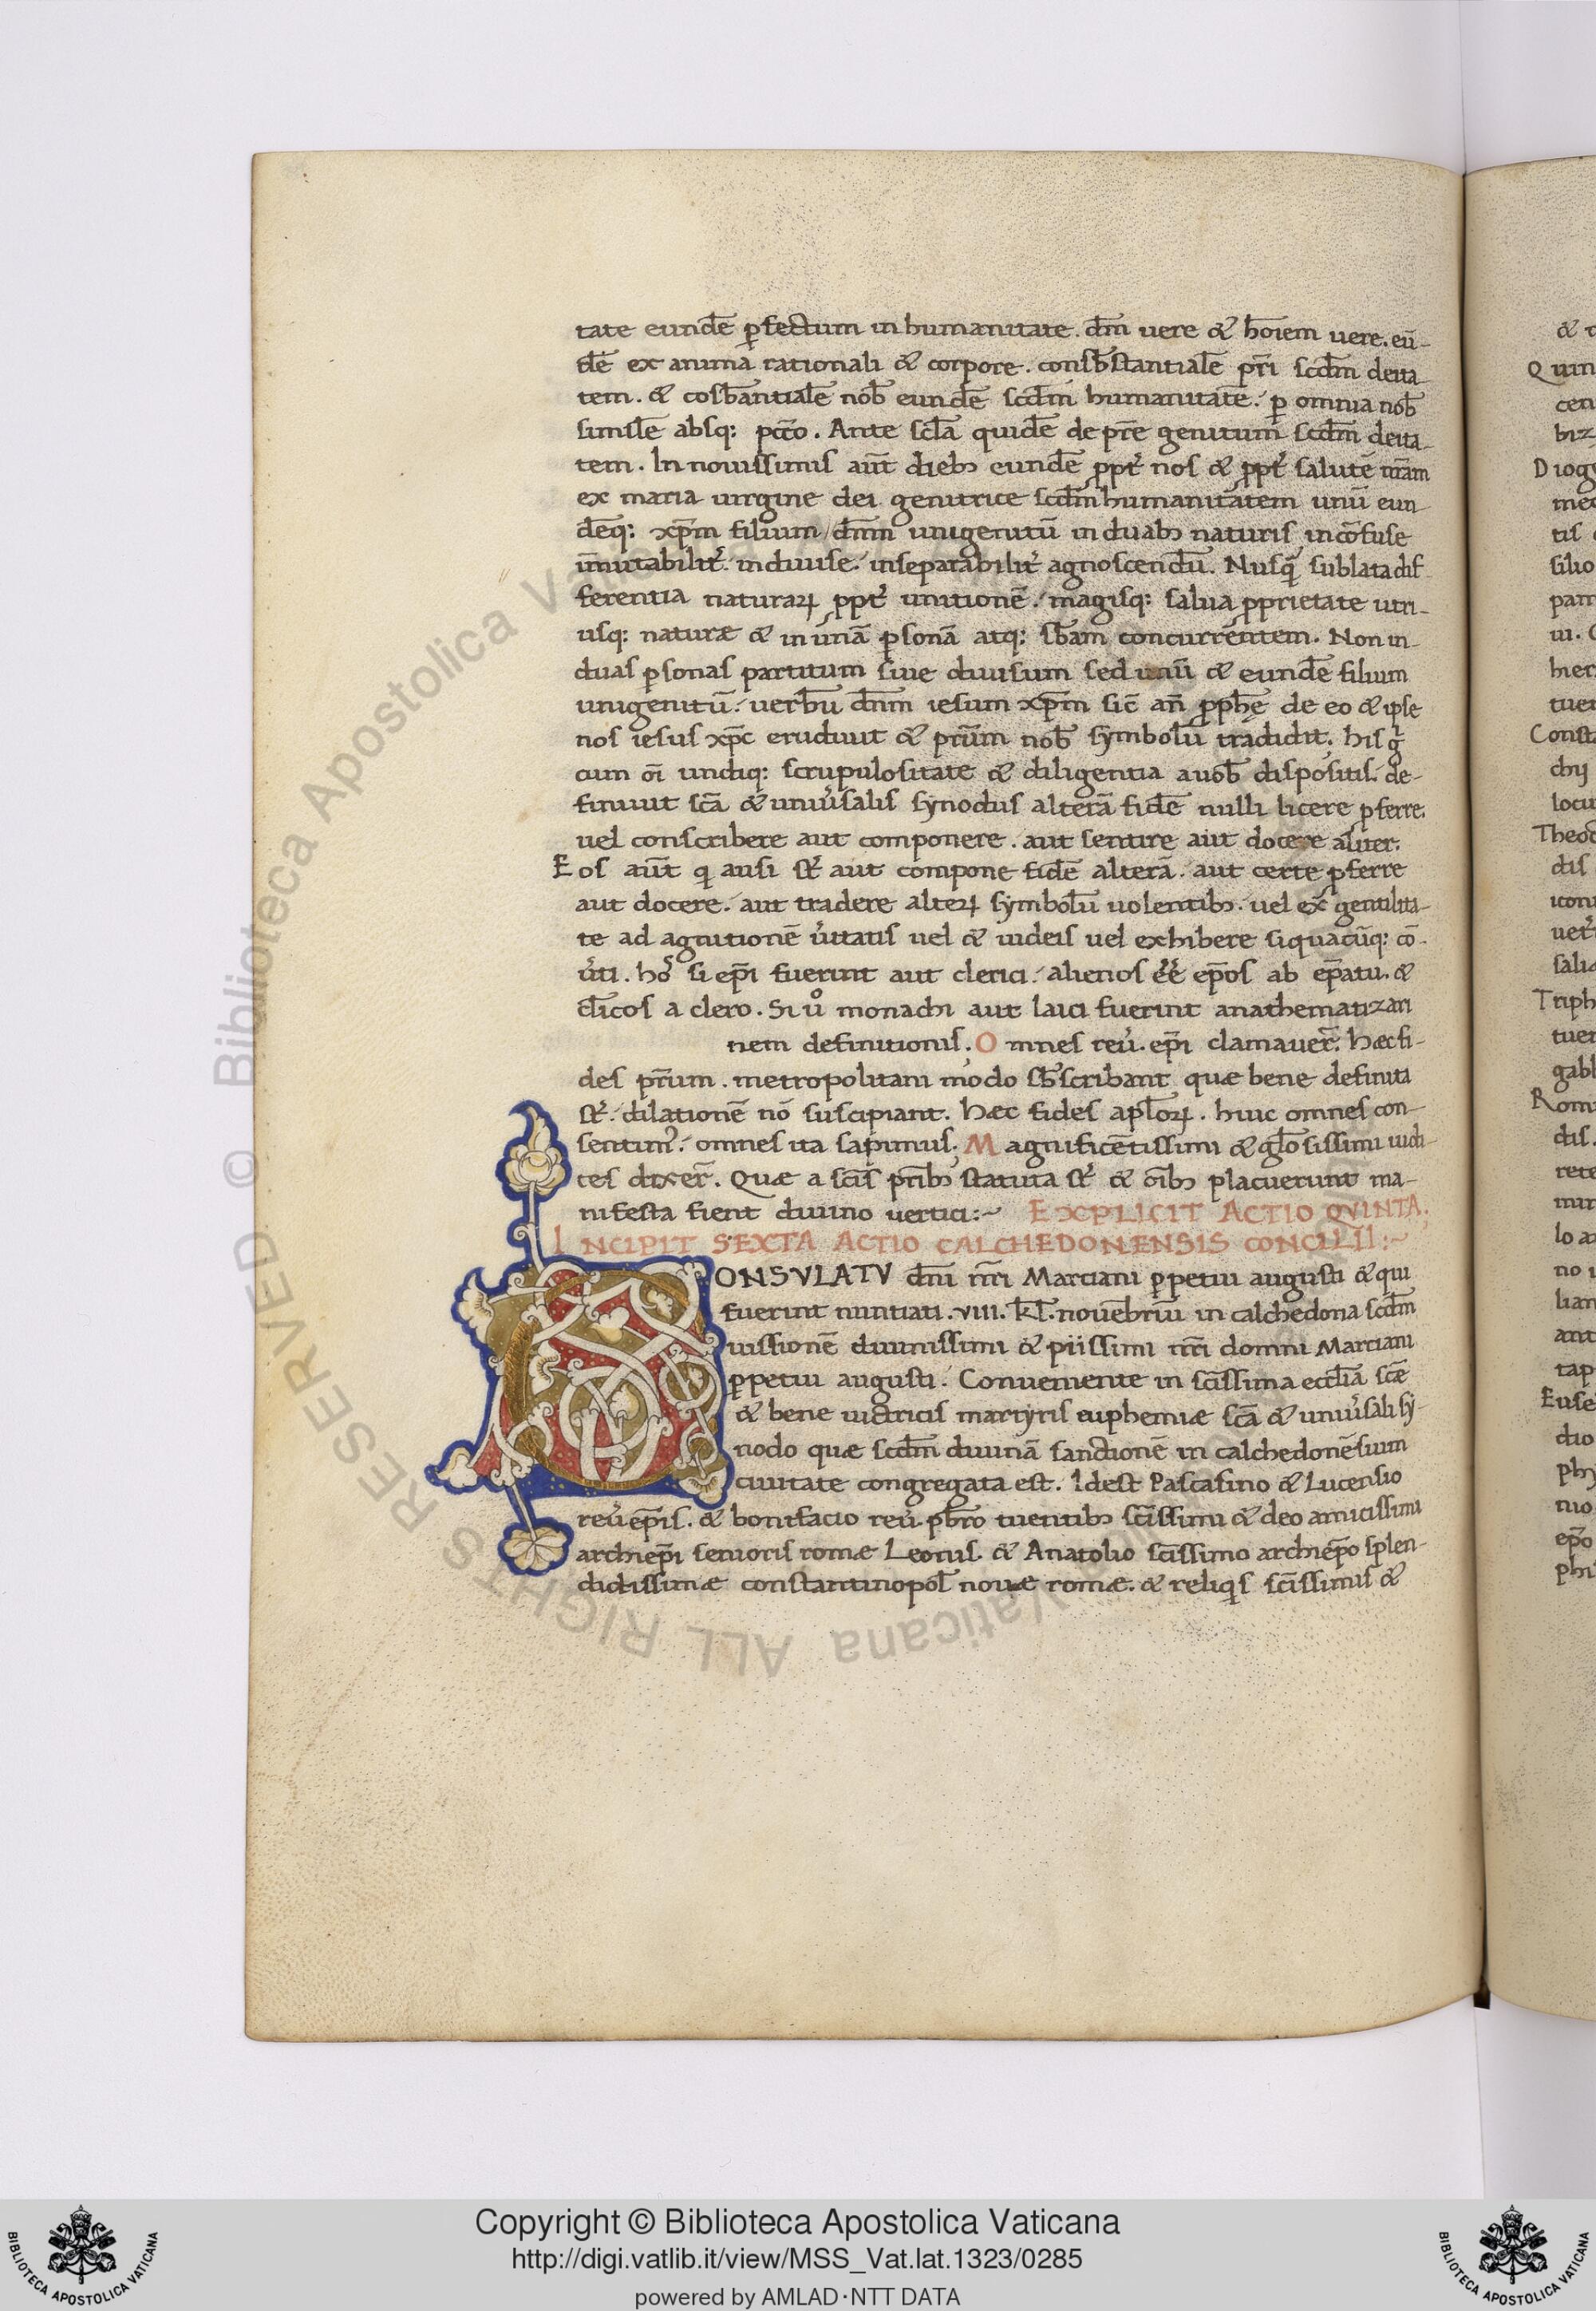 tate eundē ꝑfectum in humanitate. dm̄ uere & hoīem uere. eū-
dē ex anima rationali & corpore. consb̄stantialē pr̄i scdm̄ deita-
tem. & cosb̄antialē nob̄ eundē scdm̄ humanitatē. ꝑ omnia nob̄
similē absq: pcc̄o. Ante scl̄a quidē de pr̄e genitum scdm̄ deita-
tem. In nouissimis aūt dieb; eundē ꝓpt̄ nos & ꝓpt̄ salutē nr̄am
ex maria uirgine dei genitrice scdm̄ humanitatem unū eun-
dēq: xp̄m filium dn̄m unigenitū in duab; naturis incōfuse
īmutabilit̄. indiuise. inseparabilit̄ agnoscendū. Nusq̄ sublata dif-
ferentia naturaꝝ ppt̄ unitionē. magisq: salua ꝓprietate utri-
usq: naturæ & in unā ꝑsonā atq: sb̄am concurrentem. Non in
duas ꝑsonas partitum siue diuisum sed unū & eundē filium
unigenitū. uerbū dn̄m iesum xp̄m sic̄ an̄ ꝓph̄ę de eo & ipse
nos iesus xp̄c erudiuit & pr̄um nob̄ symbolū tradidit. his g̃
cum oī undiq: scrupulositate & diligentia a uob̄ dispositis. de-
finiuit sc̄a & uniūsalis synodus alterā fidē nulli licere ꝓferre.
uel conscribere aut componere. aut sentire aut docere aliter.
Eos aūt q̇ ausi st̄ aut compone fidē alterā. aut certe ꝓferre
aut docere. aut tradere alteꝝ symbolū uolentib;. uel ex gentilita-
te ad agnitionē ūitatis uel & iudeis uel exhibere siquacūq: cō-
ūti. hos̄ si ep̄i fuerint aut clerici. alienos ēē ep̄os ab ep̄atu. &
cl̄icos a clero. Si ů monachi aut laici fuerint anathematizari
nem definitionis. Omnes reū. ep̄i clamauer̄. hæc fi-
des pr̄um. metropolitani modo sb̄scribant quæ bene definita
st̄. dilationē nō suscipiant. hæc fides apl̄oꝝ. huic omnes con-
sentim̄. omnes ita sapimus. Magnificētissimi & gl̄osissimi iudi-
ces dixer̄. Quæ a sc̄is pr̄ib; statuta st̄ & oīb; placuerunt ma-
nifesta fient diuino uertici:~ EXPLICIT ACTIO QVINTA.
INCIPIT SEXTA ACTIO CALCHEDONENSIS CONCILII:~
CONSVLATV dn̄i nr̄i Marciani ꝑpetui augusti & qui
fuerint nuntiati. VIII. kl̄. nouēbriū in calchedona scdm̄
iussionē diuinissimi & piissimi nr̄i domni Marciani
ꝑpetui augusti. Conueniente in sc̄issima eccl̄ia sc̄æ
& bene uictricis martyris euphemiæ sc̄a & uniūsali sy-
nodo quæ scdm̄ diuinā sanctionē in calchedonēsium
ciuitate congregata est. Idest Pascasino & Lucensio
reū ep̄is. & bonifacio reū. pb̄ro tuentib; sc̄issimi & deo amicissimi
archiep̄i senioris romæ Leonis. & Anatolio sc̄issimo archiep̄o splen-
didissimæ constantinopol̄ nouæ romæ. & reliqis sc̄issimis &
© Biblioteca Apostolica Vaticana ALL RIGHTS RESERVED
Copyright © Biblioteca Apostolica Vaticana
http://digi.vatlib.it/view/MSS_Vat.lat.1323/0285
powered by AMLAD·NTT DATA
BIBLIOTECA APOSTOLICA VATICANA
BIBLIOTECA APOSTOLICA VATICANA